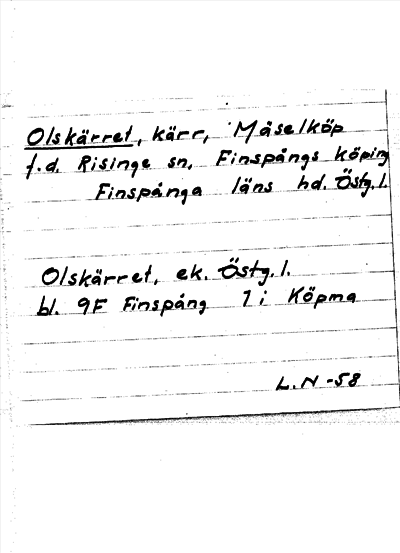 Olskärret, kärr, Måselköp
f.d. Risinge sn, Finspångs köping
Finspånga läns hd. Östg.l.
Olskärret, ek. Östg.l.
bl. 9F Finspång 1i Köpma
L.N -58